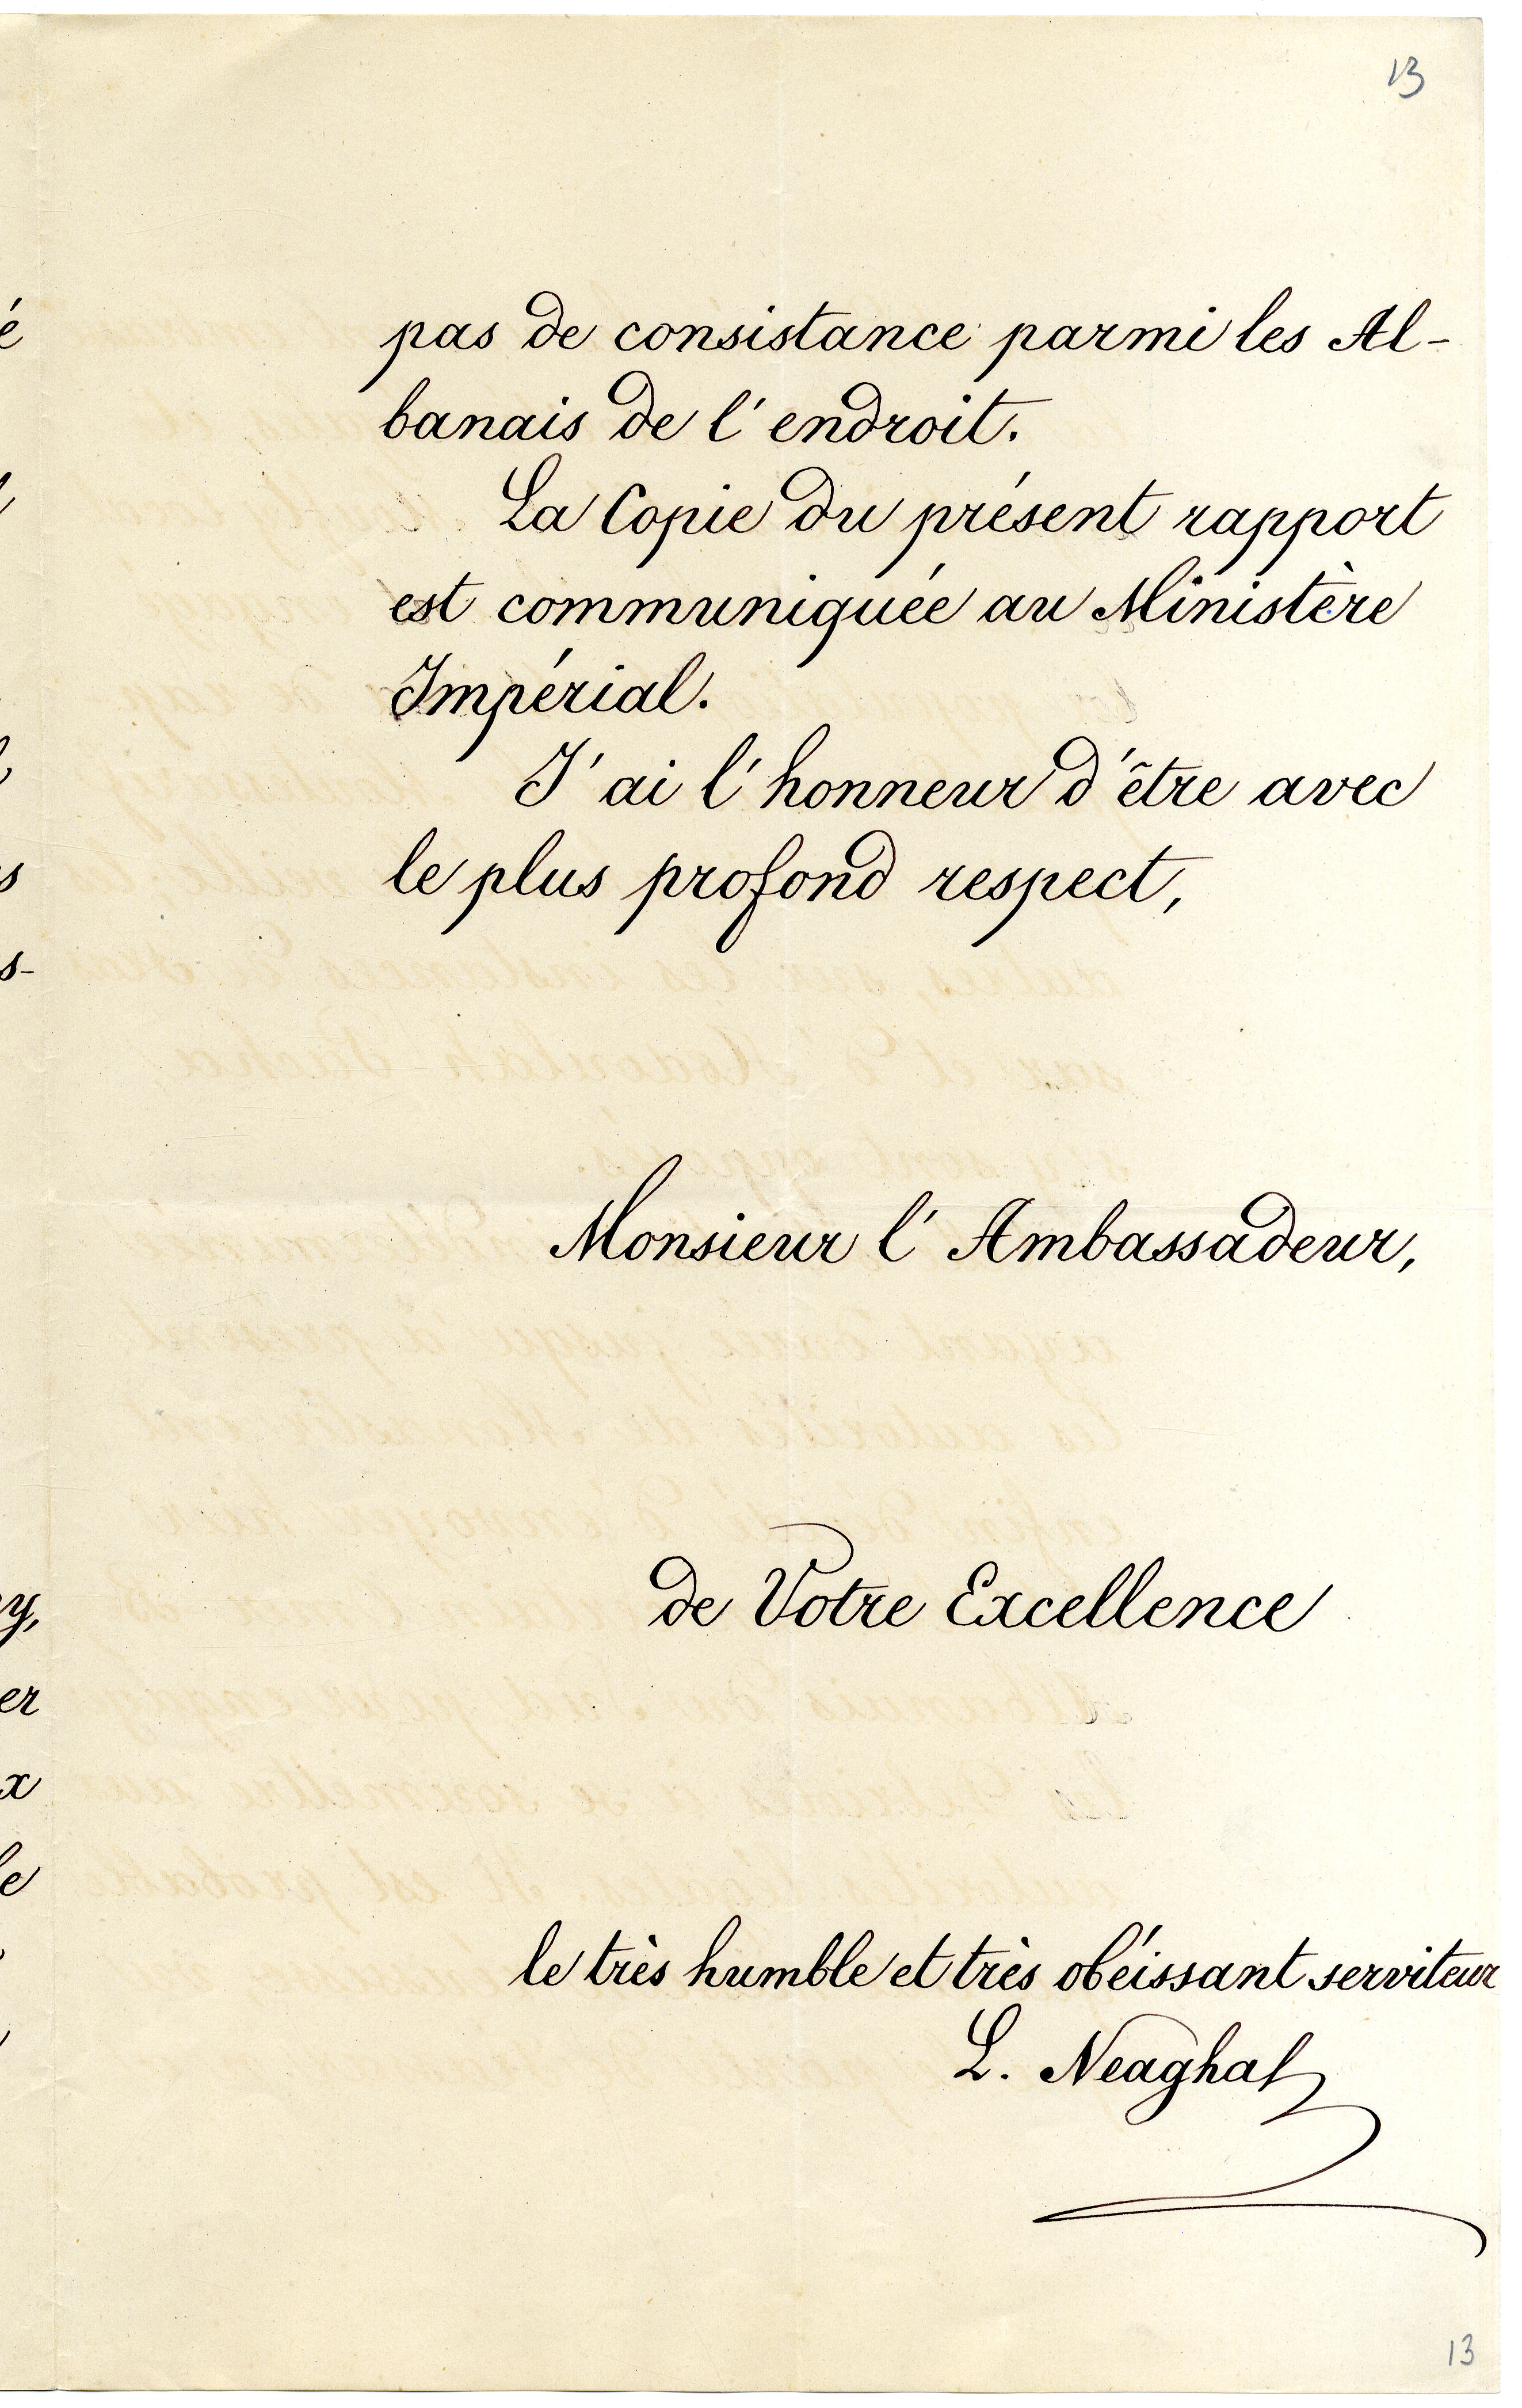 13
pas de consistance parmi les Al-
banais de l'endroit.
La Copie du présent rapport
est communiquée au Ministère
Impérial.
J'ai l'honneur d'être avec
le plus profond respect,
Monsieur l'Ambassadeur,
de Votre Excellence
le très humble et très obéissant serviteur
L.
13